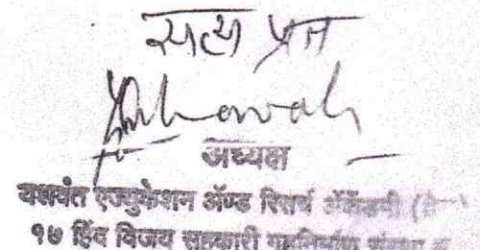 सत्य प्रत
अध्यक्ष
यशवंत एज्युकेशन ॲण्ड रिसर्च ॲकॅडमी
१७ हिंद विजय सहकारी गृहनिर्माण